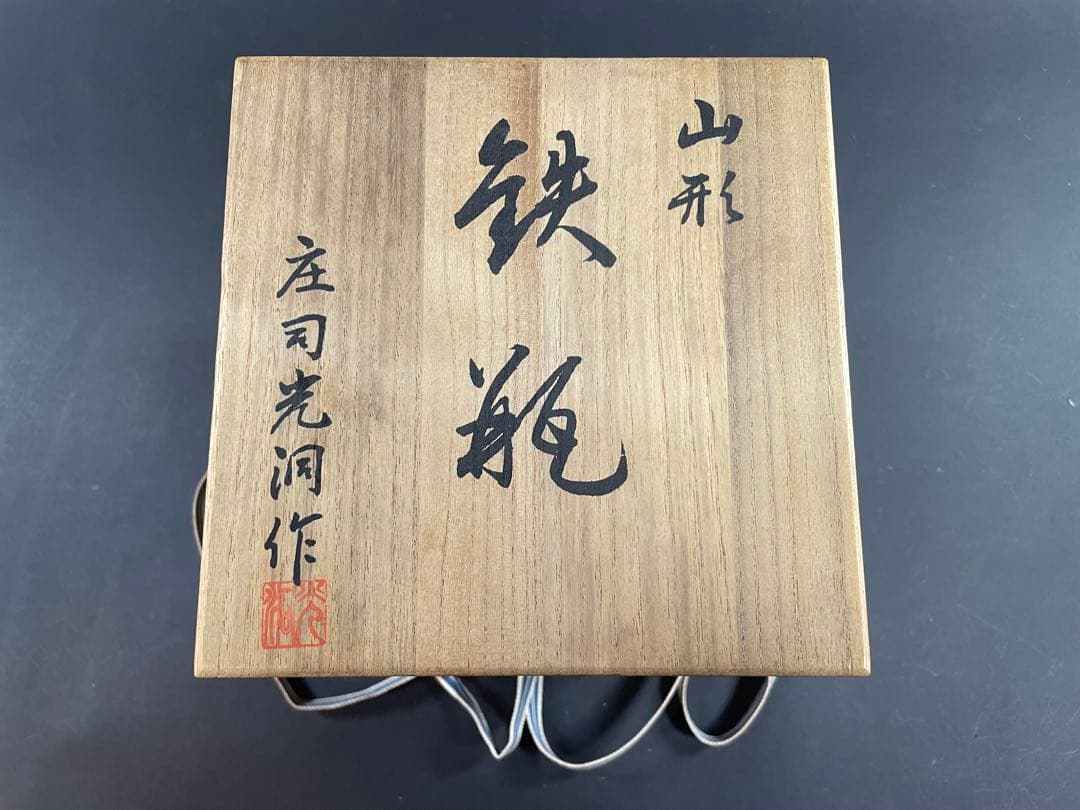 山形
鉄瓶
庄司光洞作
光洞